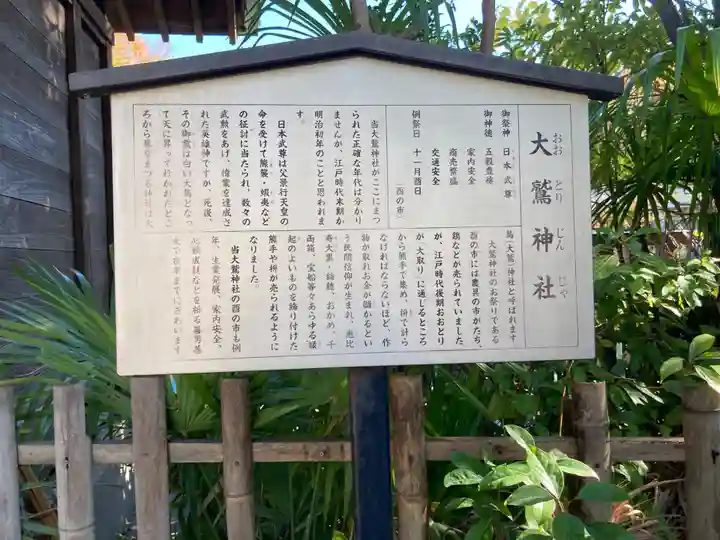 大鷲神社
おおとりじんじゃ
御祭神 日本武尊
御神徳 五穀豊穣
家内安全
商売繁盛
交通安全
例祭日 十一月酉日
(酉の市)
当大鷲神社がここにまつ
られた正確な年代は分かり
ませんが、江戸時代末期か
明治初年のことと思われま
す。
日本武尊は父景行天皇の
命を受けて熊襲・蝦夷など
の征討に当たられ、数々の
武勲をあげ、偉業を達成さ
れた英雄神ですが、死後、
その御霊は白い大鳥となっ
て天に昇って行かれたとこ
ろから鷲をまつる神社は大
鳥(大鷲)神社と呼ばれます
大鷲神社のお祭りである
酉の市には農具の市がたち、
鶏などが売られていました
が、江戸時代後期おおとり
が「大取り」に通じるところ
から熊手で集め、枡で計ら
なければならないほど、作
物が取れお金が儲かるとい
う民間信仰が生まれ、恵比
寿大黒・鶴亀、おかめ、千
両箱、宝船等々あらゆる縁
起のよいものを飾り付けた
熊手や枡が売られるように
なりました。
当大鷲神社の酉の市も例
年、生業発展、家内安全、
心願成就などを祈る善男善
女で夜半までにぎわいます